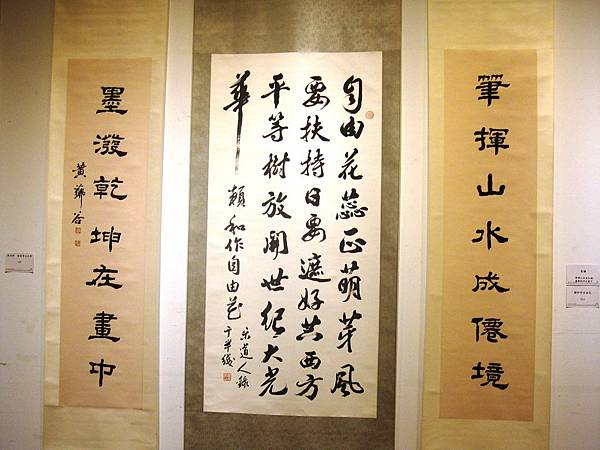 筆揮山水成僊境
自由花蕊正萌芽風
要扶持日要遮好共西方
平等樹放開世紀大光
華 賴和作自由花
道人錄
于半線
墨潑乾坤在畫中
黃 谷